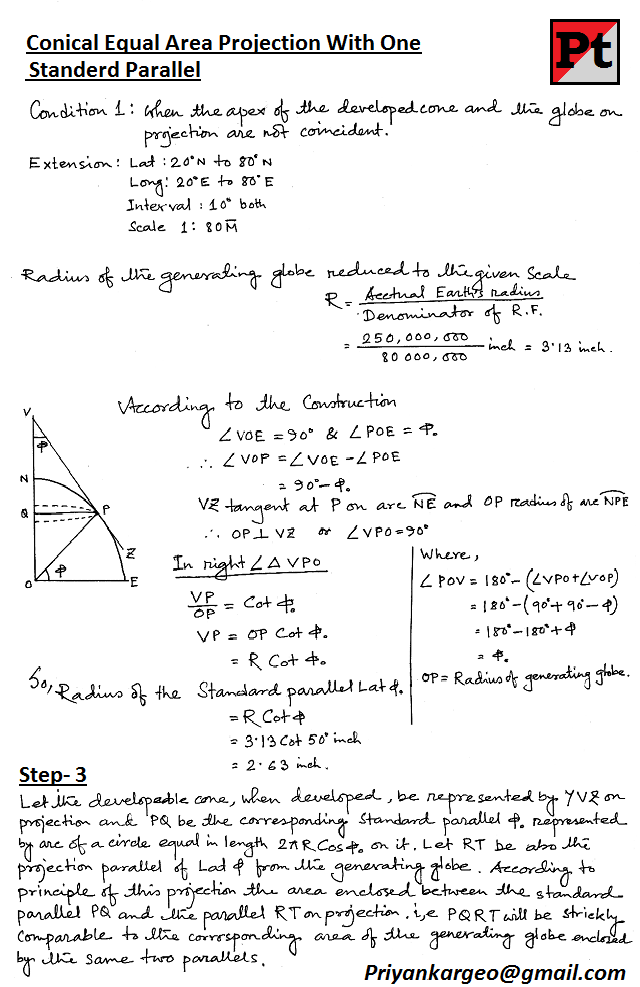 Conical Equal Area Projection With One
Standerd Parallel
Pt
Condition 1: When the apex of the developed cone and the globe on
projection are not coincident.
Extension: Lat : 20°N to 80°N
Long: 20°E to 80°E
Interval : 10° both
Scale 1: 80M̄
Radius of the generating globe reduced to the given Scale
R = Acctual Earth's radius / Denominator of R.F.
= 250,000,000 / 80 000,000 inch = 3.13 inch.
According to the Construction
∠VOE = 90° & ∠POE = Φ.
∴ ∠VOP = ∠VOE - ∠POE
= 90° - Φ.
VZ tangent at P on arc NE and OP radius of arc NPE
∴ OP ⊥ VZ or ∠VPO = 90°
V
Φ
N
Q
P
Z
O
Φ
E
In right ∠ Δ VPO
VP / OP = Cot Φ.
VP = OP Cot Φ.
= R Cot Φ.
Where,
∠POV = 180° - (∠VPO + ∠VOP)
= 180° - (90° + 90° - Φ)
= 180° - 180° + Φ
= Φ.
OP = Radius of generating globe.
So, Radius of the Standard parallel Lat Φ.
= R Cot Φ
= 3.13 Cot 50° inch
= 2.63 inch.
Step- 3
Let the developable cone, when developed, be represented by YVZ on
projection and PQ be the corresponding Standard parallel Φ. represented
by arc of a circle equal in length 2πR Cos Φ. on it. Let RT be also the
projection parallel of Lad Φ from the generating globe. According to
principle of this projection the area enclosed between the standard
parallel PQ and the parallel RT on projection. i,e PQRT will be strickly
Comparable to the corrosponding area of the generating globe enclosed
by the same two parallels.
Priyankargeo@gmail.com